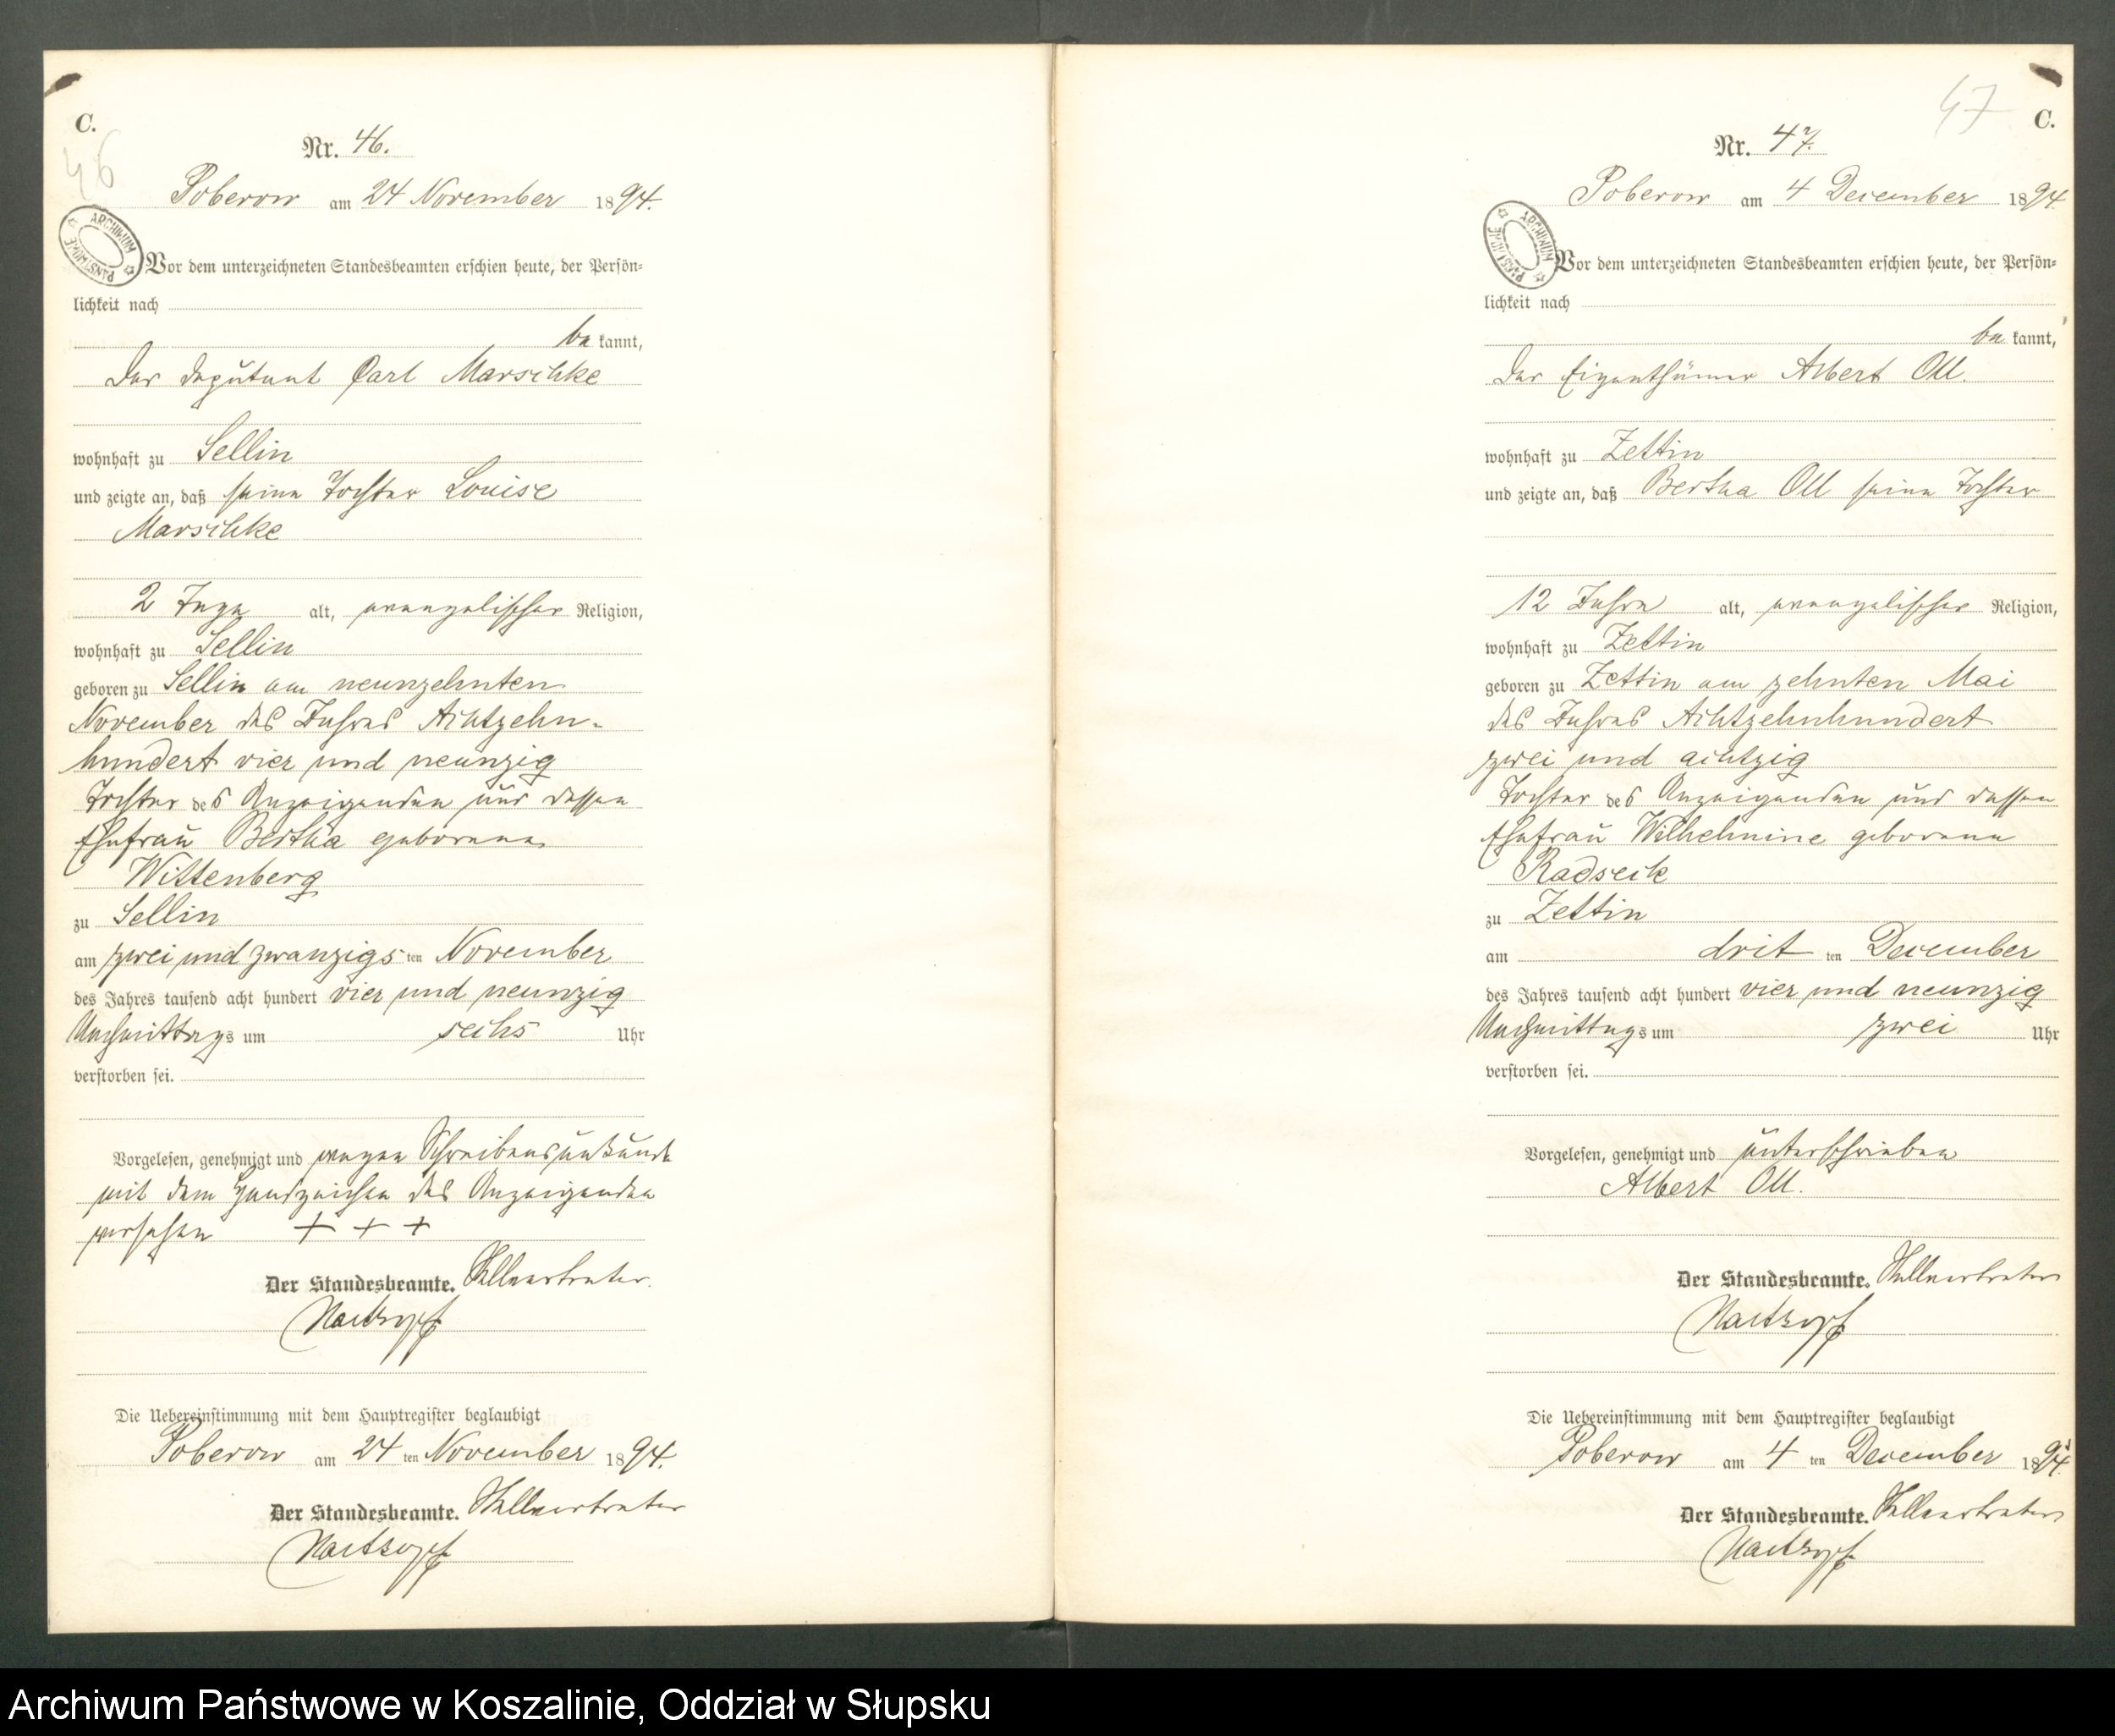 C.
46
Nr. 46.
Poberow am 24 November 1894.
ARCHIWUM PAŃSTWOWE
Vor dem unterzeichneten Standesbeamten erschien heute, der Persön-
lichkeit nach
be kannt,
der Deputant Carl Marschke
wohnhaft zu Sellin
und zeigte an, daß seine Tochter Louise
Marschke
2 Tage alt, evangelischer Religion,
wohnhaft zu Sellin
geboren zu Sellin am neunzehnten
November des Jahres Achtzehn-
hundert vier und neunzig
Tochter des Anzeigenden und dessen
Ehefrau Bertha geborene
Wittenberg
zu Sellin
am zwei und zwanzigs ten November
des Jahres tausend acht hundert vier und neunzig
Nachmittags um sechs Uhr
verstorben sei.
Vorgelesen, genehmigt und wegen Schreibensunkunde
mit dem Handzeichen des Anzeigenden
versehen + + +
Der Standesbeamte. Stellvertreter.
Die Uebereinstimmung mit dem Hauptregister beglaubigt
Poberow am 24 ten November 1894.
Der Standesbeamte. Stellvertreter
47
C.
Nr. 47.
Poberow am 4 December 1894.
ARCHIWUM PAŃSTWOWE
Vor dem unterzeichneten Standesbeamten erschien heute, der Persön-
lichkeit nach
be kannt,
der Eigenthümer Albert Oll.
wohnhaft zu Zettin
und zeigte an, daß Bertha Oll seine Tochter
12 Jahre alt, evangelischer Religion,
wohnhaft zu Zettin
geboren zu Zettin am zehnten Mai
des Jahres Achtzehnhundert
zwei und achtzig
Tochter des Anzeigenden und dessen
Ehefrau Wilhelmine geborene
Radseck
zu Zettin
am drit ten December
des Jahres tausend acht hundert vier und neunzig
Nachmittags um zwei Uhr
verstorben sei.
Vorgelesen, genehmigt und unterschrieben
Albert Oll.
Der Standesbeamte. Stellvertreter
Die Uebereinstimmung mit dem Hauptregister beglaubigt
Poberow am 4 ten December 1894.
Der Standesbeamte. Stellvertreter
Archiwum Państwowe w Koszalinie, Oddział w Słupsku